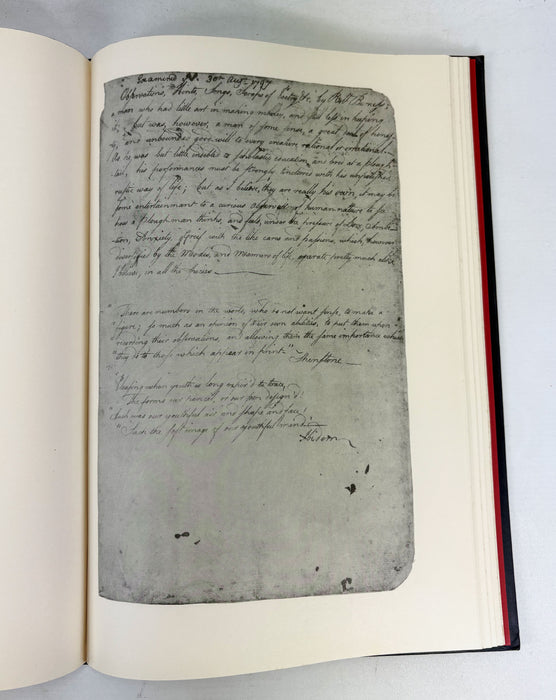 Examined 30th Augt 1797
Observations, Hints, Songs, Scraps of Poetry &c. by Robt Burness;
a man who had little art in making money, and still less in keeping
it; but was, however, a man of some sense, a great deal of honesty,
and unbounded good-will to every creature rational or irrational.—
As he was but little indebted to scholastic education, and bred at a plough-
tail, his performances must be strongly tinctured with his unpolished,
rustic way of life; but as I believe, they are really his own, it may be
some entertainment to a curious observer of human-nature to see
how a ploughman thinks, and feels, under the pressure of Love, Ambi-
tion, Anxiety, Grief with the like cares and passions, which, however
diversified by the Modes, and Manners of life, operate pretty much alike
I believe, in all the Species
" There are numbers in the world, who do not want sense, to make a
figure; so much as an opinion of their own abilities, to put them upon
recording their observations, and allowing them the same importance which
" they do to those which appear in print." Shenstone
" Pleasing when youth is long expir'd to trace,
The forms our pencil, or our pen design'd!
" Such was our youthful air and shape and face!
" Such the soft image of our youthful mind